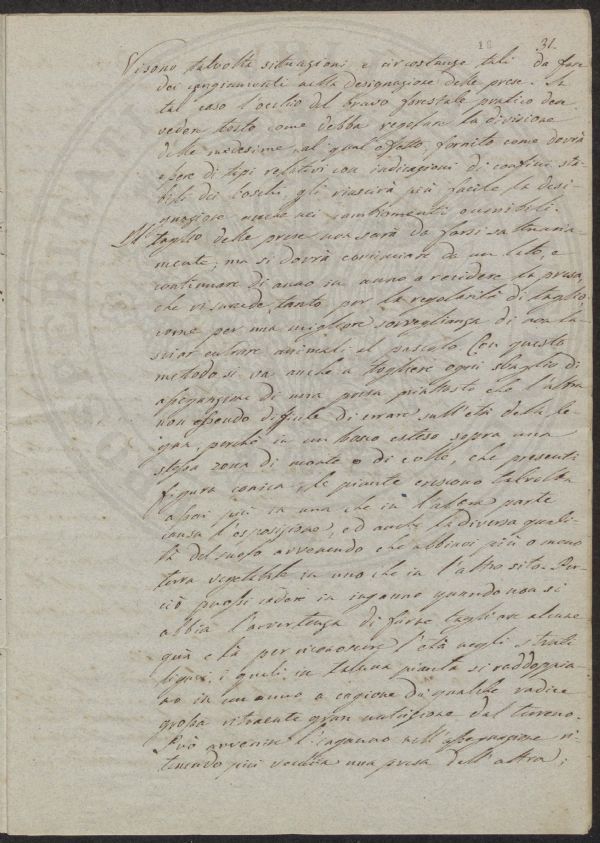 18 31.
Vi sono talvolta situazioni e circostanze tali da fare
dei cangiamenti nella designazione delle prese. In
tal caso l'occhio del bravo forestale pratico deve
veder tosto come debba regolare la divisione
delle medesime, al qual effetto, fornito come dovrà
essere di tipi relativi con indicazioni di confini sta-
bili dei boschi, gli riuscirà più facile la desi-
gnazione anche nei cambiamenti
Il taglio delle prese non sarà da farsi saltuaria-
mente, ma si dovrà cominciare da un lato, e
continuare di anno in anno a recidere la presa
che vi succede, tanto per la regolarità di taglio
come per una migliore sorveglianza di non la-
sciar entrare animali al pascolo. Con questo
metodo si va anche a togliere ogni sbaglio di
assegnazione di una presa piuttosto che l'altra
non essendo difficile di errare sull'età della le-
gna, perché in un bosco esteso sopra una
stessa zona di monte o di colle, che presenti
figura conica, le piante crescono talvolta
assai più in una che in l'altra parte
causa l'esposizione, ed anche la diversa quali-
tà del suolo avvenendo che abbiavi più o meno
terra vegetabile in uno che in l'altro sito. Per-
ciò puossi cadere in inganno quando non si
abbia l'avvertenza di farne tagliare alcune
quà e là per riconoscere l'età negli strati
lignei, i quali in taluna pianta si raddoppia-
no in un anno a cagione di qualche radice
grossa ritraente gran nutrizione dal terreno.
Può avvenire l'inganno nell'assegnazione ri-
tenendo più vecchia una presa dell'altra,